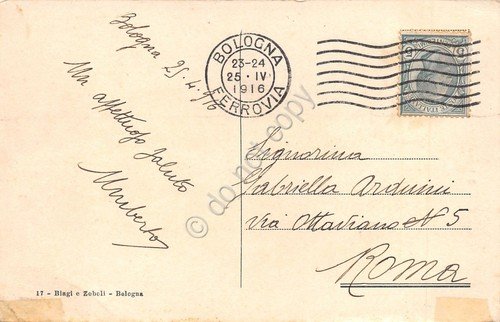 Bologna 25.4.916
Un affettuoso saluto
Umberto
BOLOGNA
23-24
25·IV
1916
FERROVIA
Signorina
Gabriella Arduini
Via Ottaviano N 5
Roma
17 - Biagi e Zoboli - Bologna
© do not copy